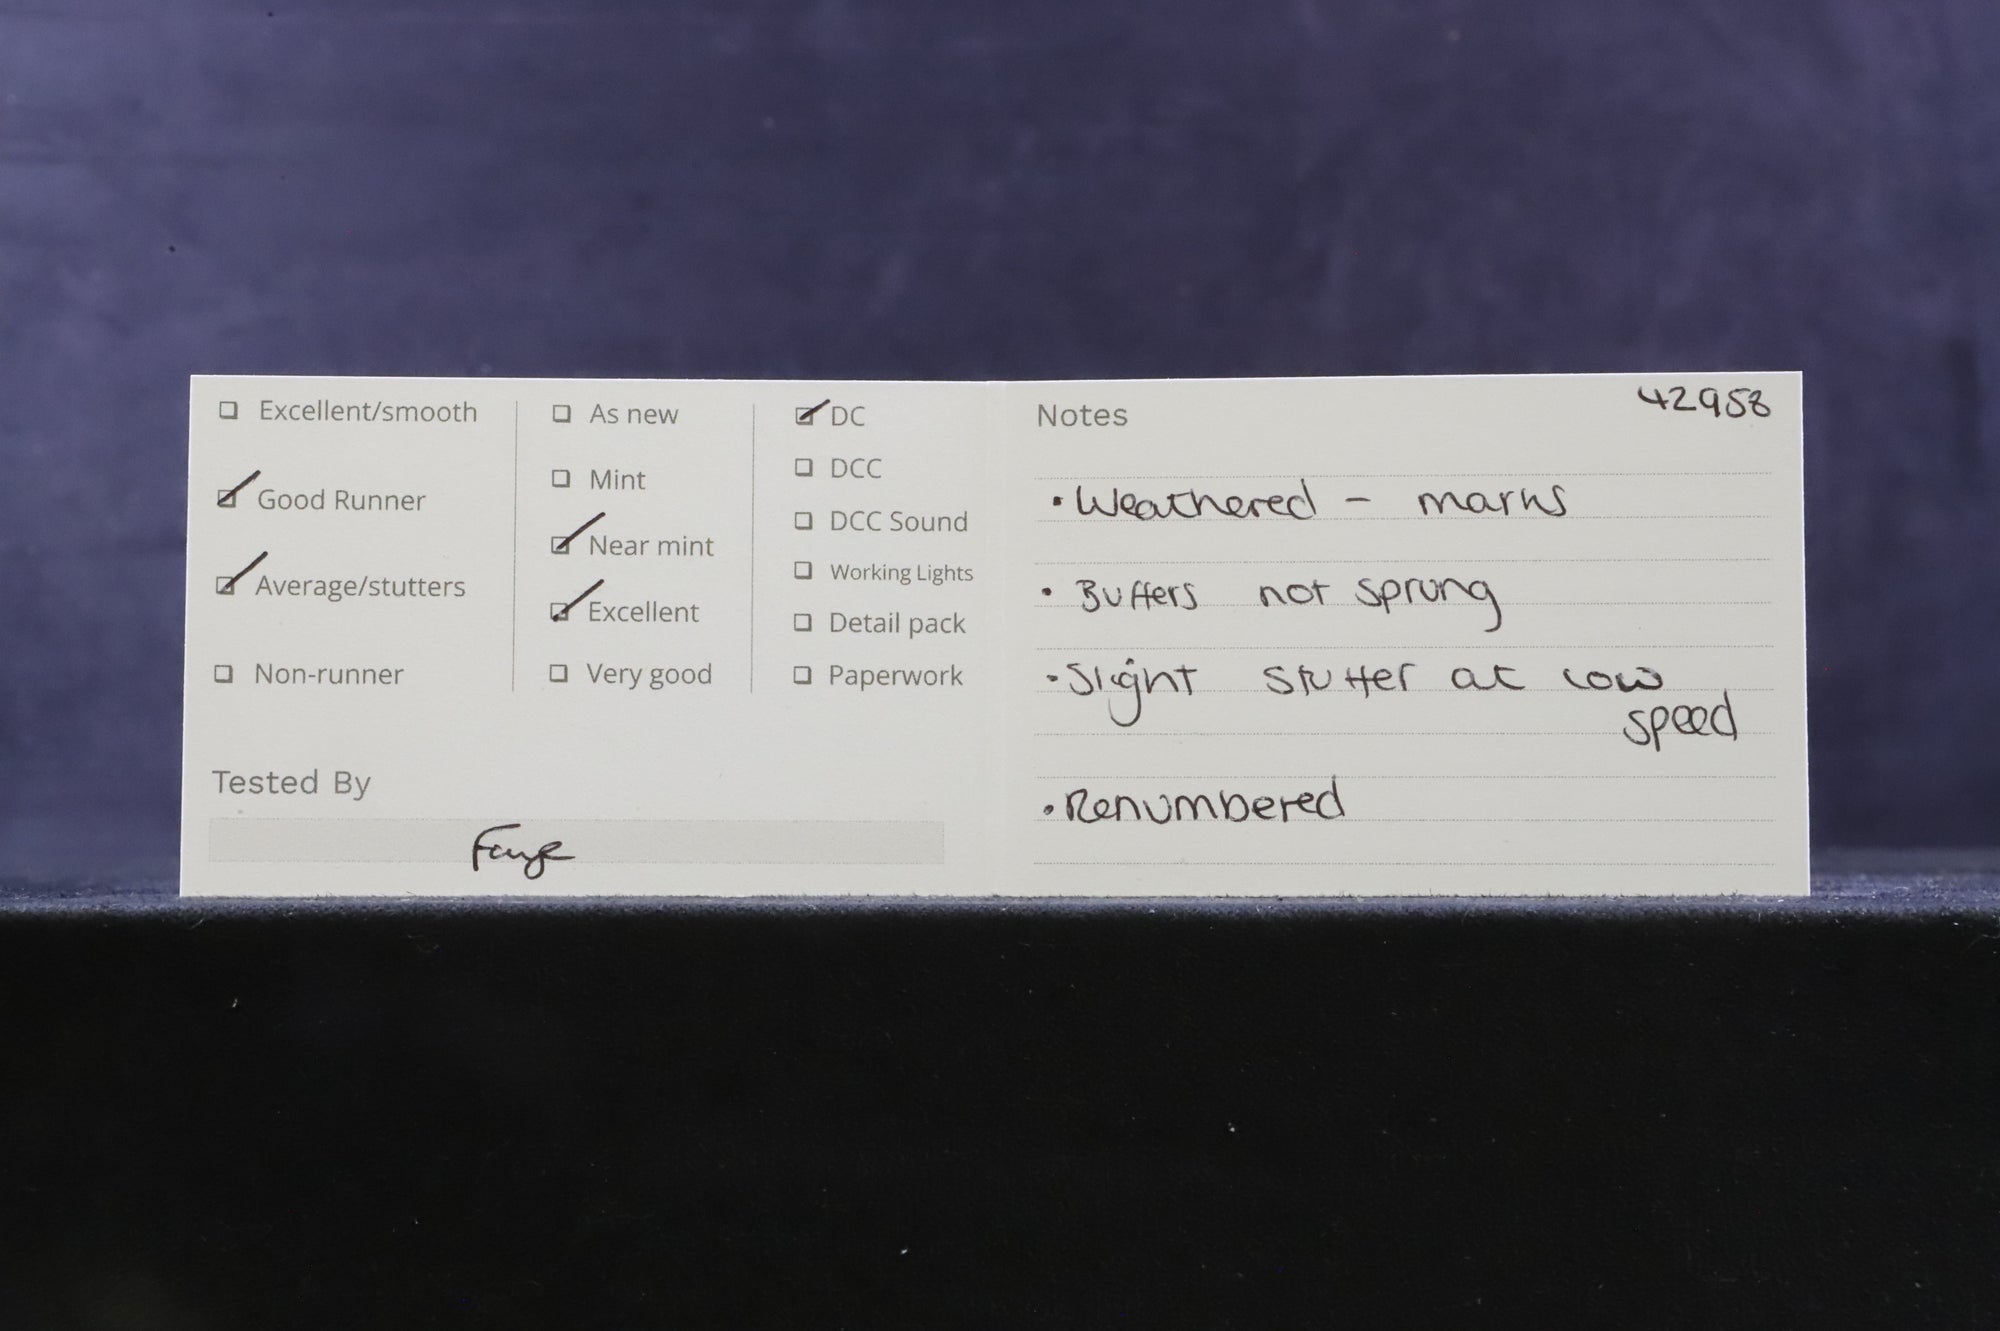 ☐ Excellent/smooth
☑ Good Runner
☑ Average/stutters
☐ Non-runner
☐ As new
☐ Mint
☑ Near mint
☑ Excellent
☐ Very good
☑ DC
☐ DCC
☐ DCC Sound
☐ Working Lights
☐ Detail pack
☐ Paperwork
Tested By
Faye
Notes
42958
• Weathered - marks
• Buffers not sprung
• Slight stutter at low
speed
• Renumbered